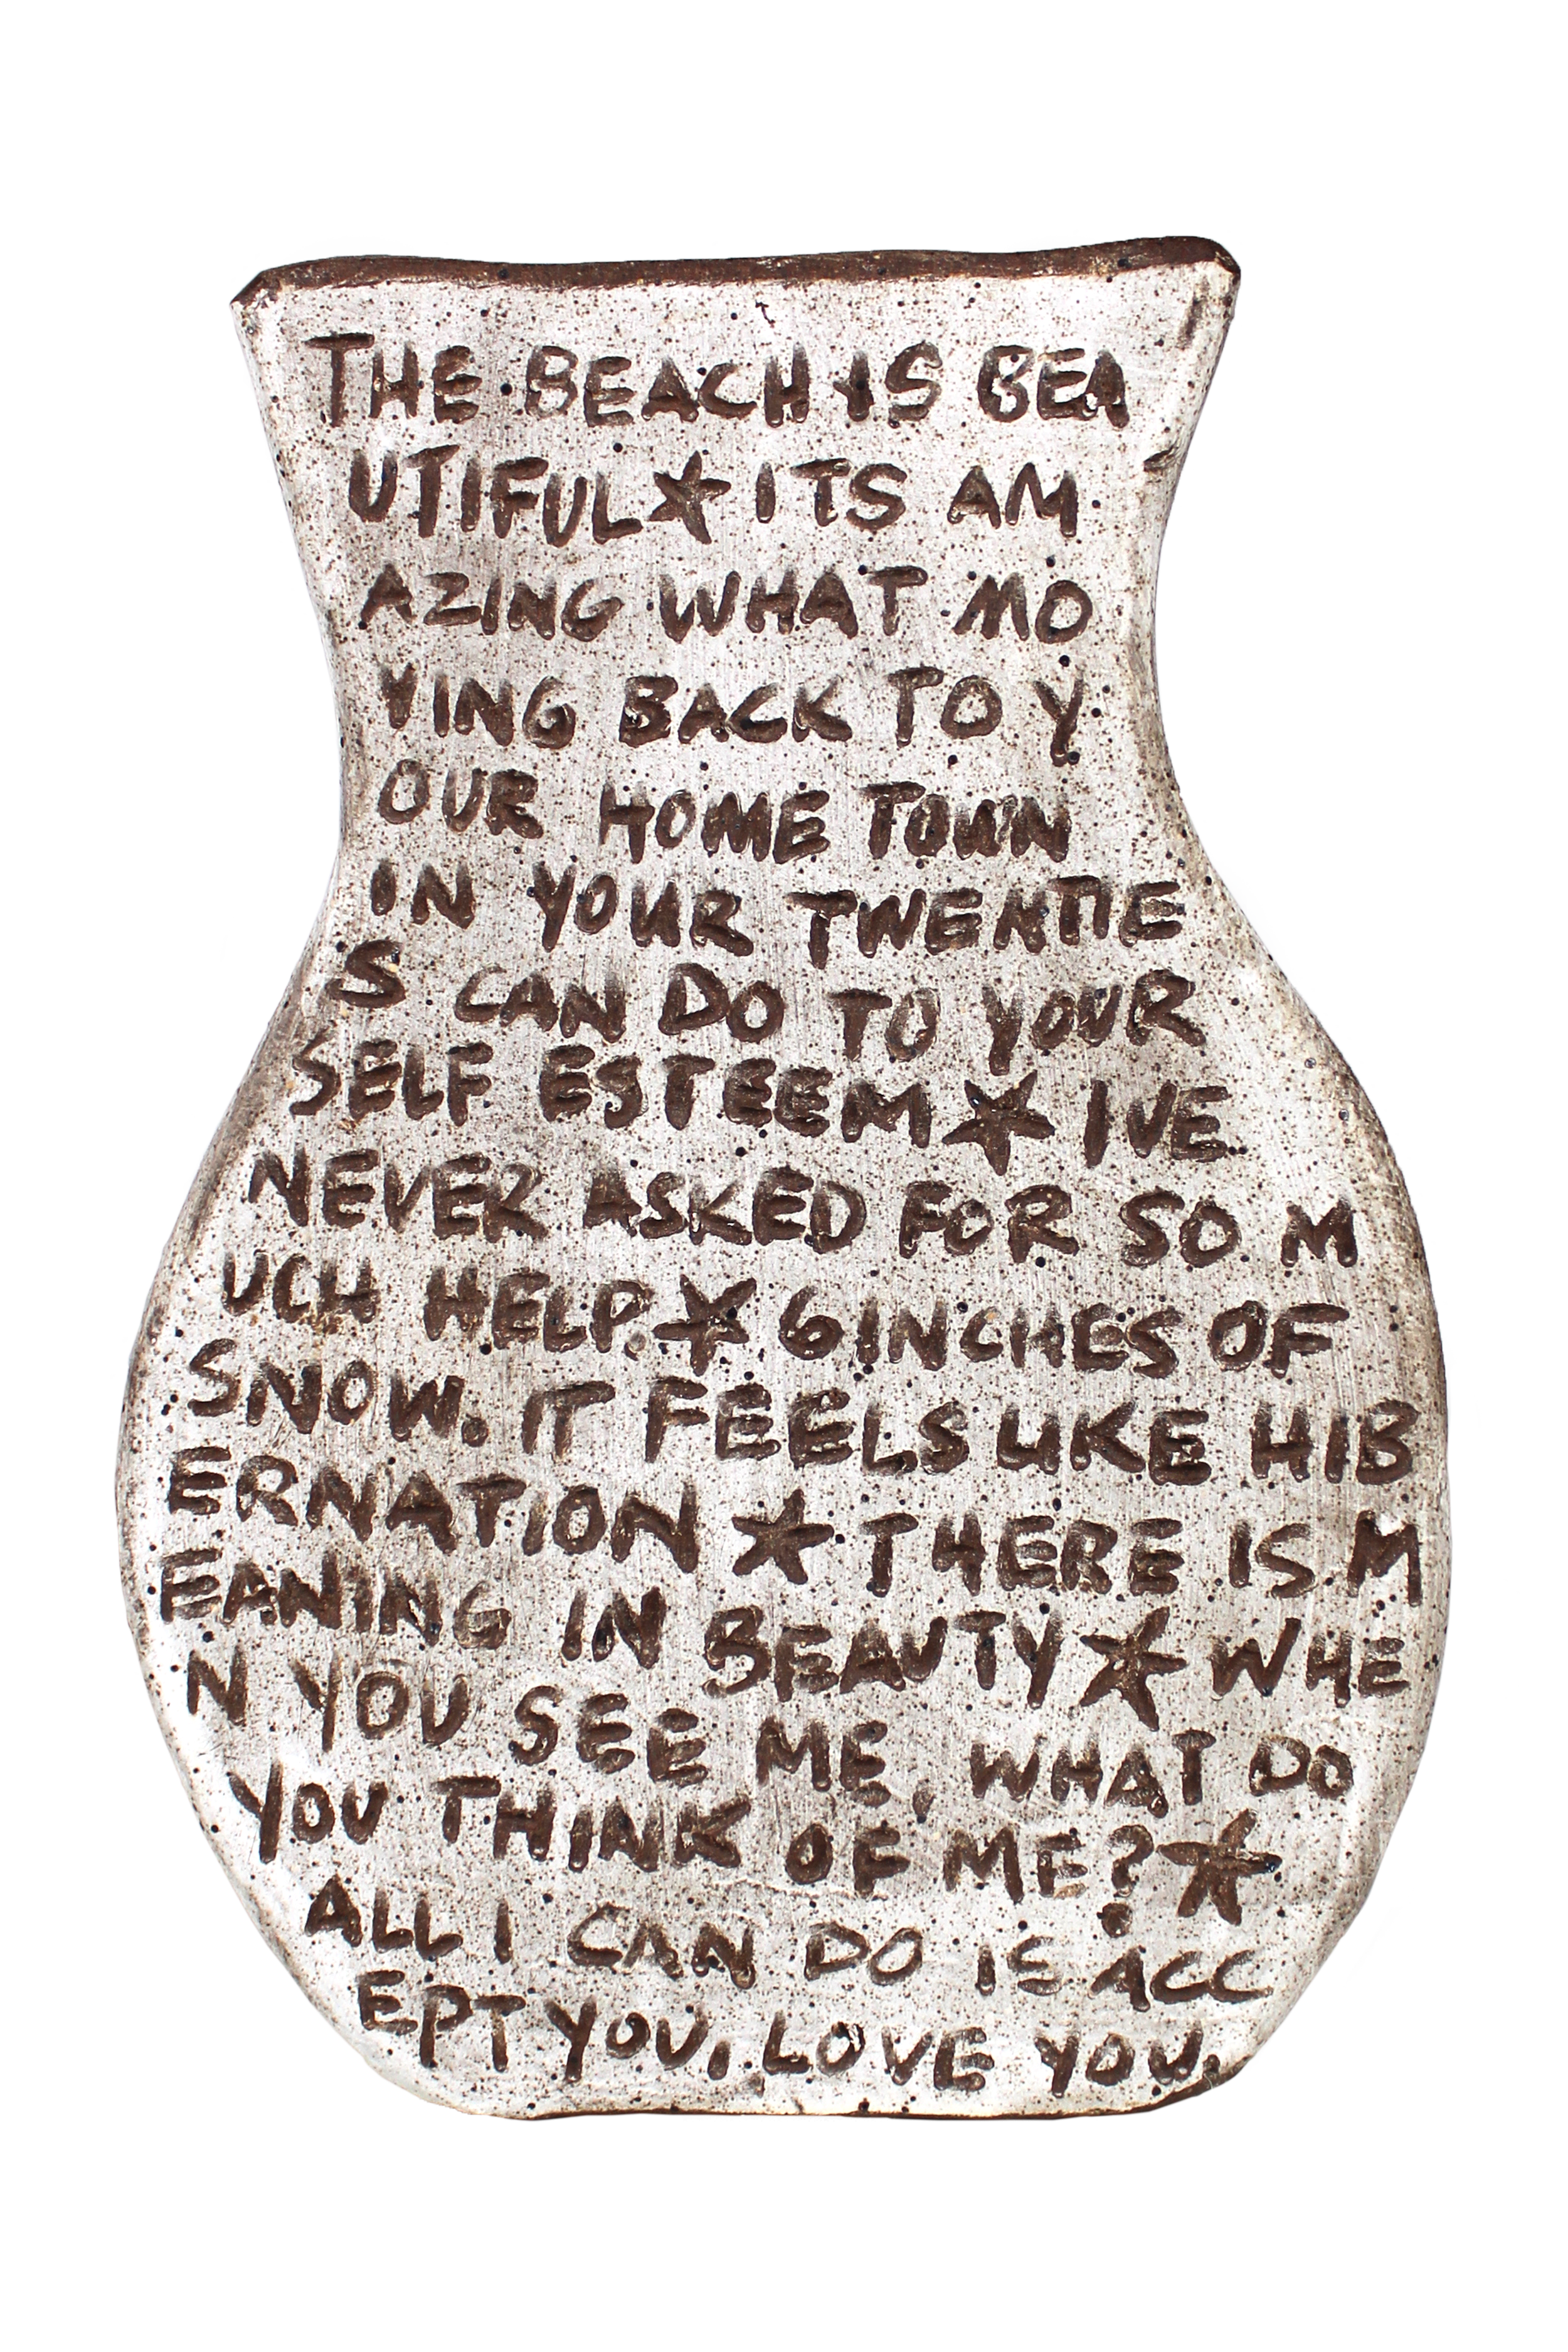 THE BEACH IS BEA
UTIFUL★ITS AM
AZING WHAT MO
VING BACK TO Y
OUR HOME TOWN
IN YOUR TWENTIE
S CAN DO TO YOUR
SELF ESTEEM★IVE
NEVER ASKED FOR SO M
UCH HELP.★6 INCHES OF
SNOW. IT FEELS LIKE HIB
ERNATION ★ THERE IS M
EANING IN BEAUTY★ WHE
N YOU SEE ME, WHAT DO
YOU THINK OF ME?★
ALL I CAN DO IS ACC
EPT YOU, LOVE YOU.